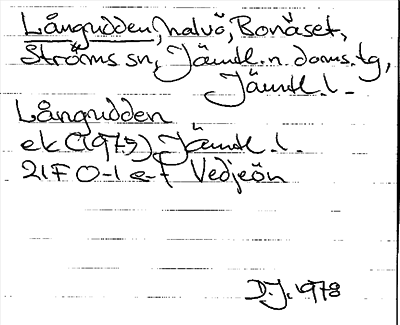 Långudden, halvö, Bonäset,
Ströms sn, Jämtl. n. doms.tg,
Jämtl. l.
Långudden
ek (1975) Jämtl. l.
21F 0-1 e-f Vedjeön
D.J. 1978